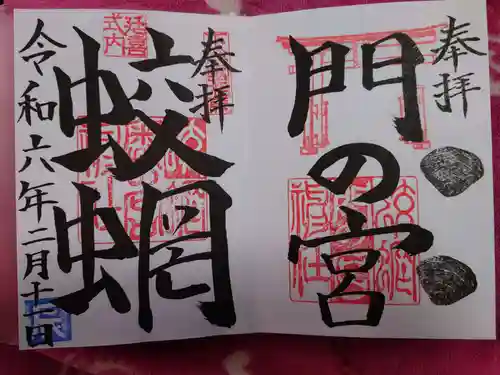 奉拝
門の宮
奉拝
延喜式内
蛟蝄
令和六年二月十七日